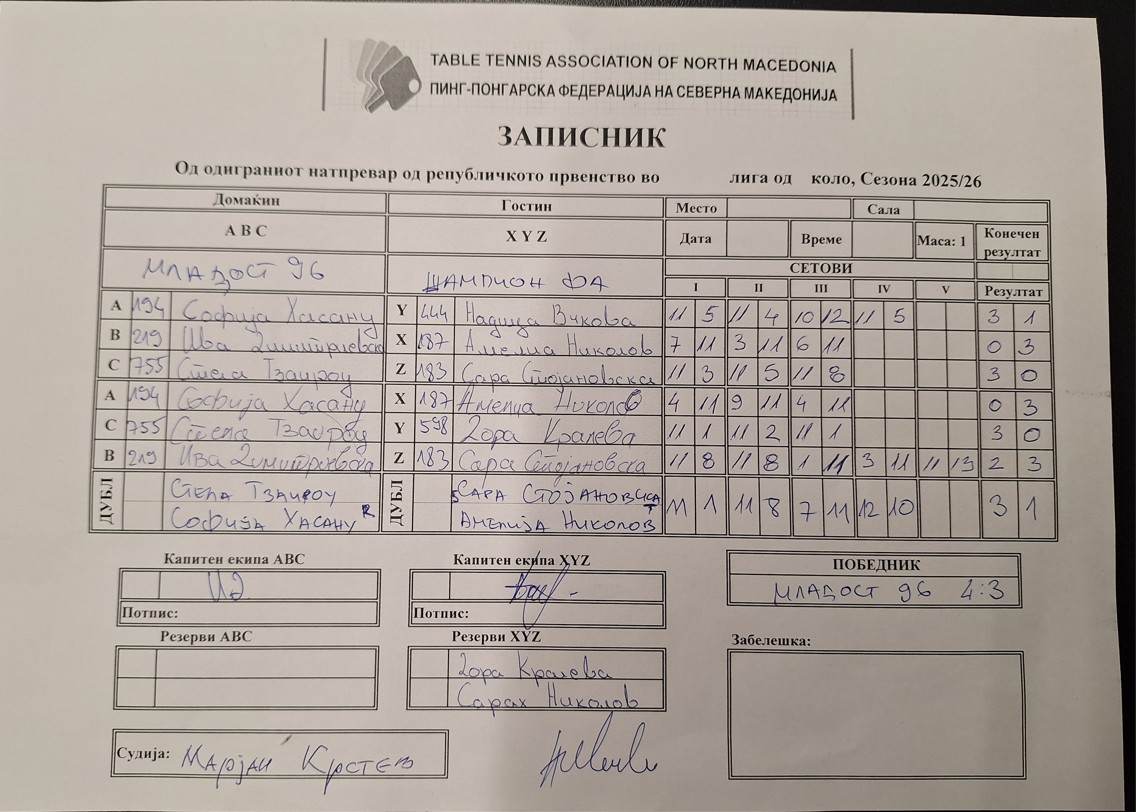 TABLE TENNIS ASSOCIATION OF NORTH MACEDONIA
ПИНГ-ПОНГАРСКА ФЕДЕРАЦИЈА НА СЕВЕРНА МАКЕДОНИЈА
ЗАПИСНИК
Од одиграниот натпревар од републичкото првенство во лига од коло, Сезона 2025/26
Домаќин Гостин Место Сала
A B C X Y Z Дата Време Маса: 1 Конечен резултат
МЛАДОСТ 96 ШАМПИОН ФА СЕТОВИ
I II III IV V Резултат
A 194 Софија Хасану Y 444 Надица Вчкова 11 5 11 4 10 12 11 5 3 1
B 219 Ива Димитриевска X 187 Амелиа Николов 7 11 3 11 6 11 0 3
C 755 Стела Тзаироу Z 183 Сара Стојановска 11 3 11 5 11 8 3 0
A 194 Софија Хасану X 187 Амелиа Николов 4 11 9 11 4 11 0 3
C 755 Стела Тзаироу Y 598 Зора Кралева 11 1 11 2 11 1 3 0
B 219 Ива Димитриевска Z 183 Сара Стојановска 11 8 11 8 1 11 3 11 11 13 2 3
ДУБЛ СТЕЛА ТЗАИРОУ ДУБЛ САРА СТОЈАНОВСКА 11 1 11 8 7 11 12 10 3 1
СОФИЈА ХАСАНУ АМЕЛИЈА НИКОЛОВ
Капитен екипа ABC Капитен екипа XYZ ПОБЕДНИК
МЛАДОСТ 96 4:3
Потпис: Потпис:
Резерви ABC Резерви XYZ Забелешка:
Зора Кралева
Сарах Николов
Судија: Марјан Крстев